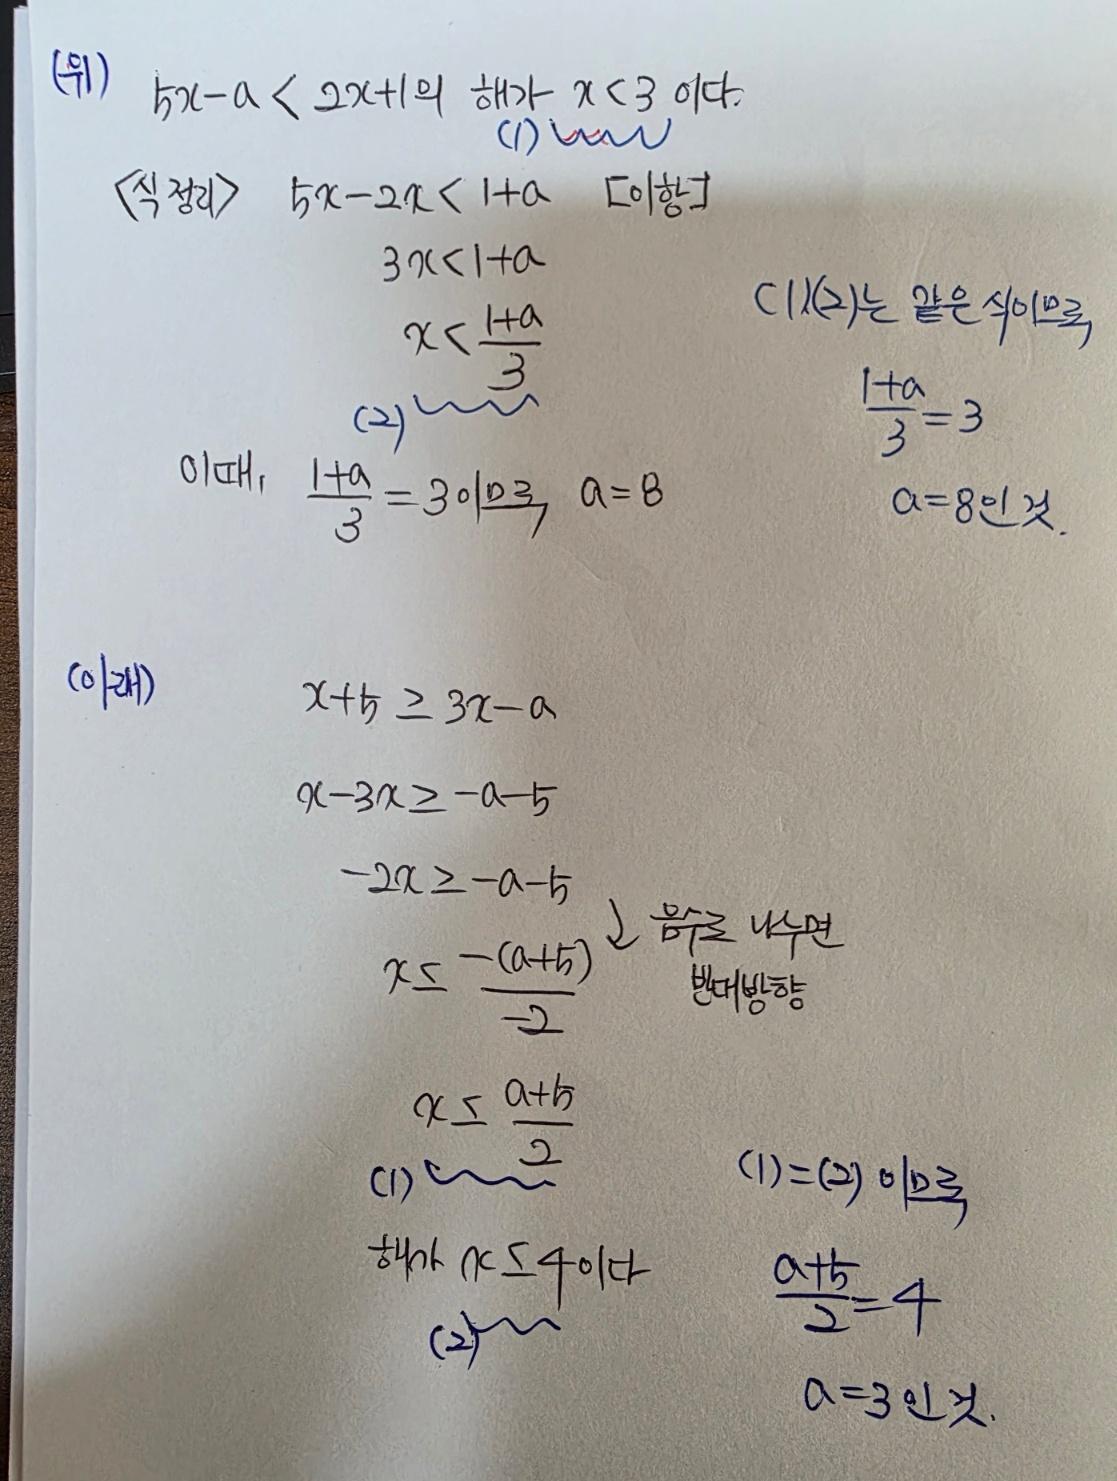 (위) 5x-a < 2x+1의 해가 x<3 이다.
(1)
<식 정리> 5x-2x < 1+a [이항]
3x<1+a
x < (1+a)/3
(2)
이때, (1+a)/3 = 3이므로, a=8
(1)(2)는 같은 식이므로,
(1+a)/3 = 3
a=8인 것.
(아래) x+5 ≥ 3x-a
x-3x ≥ -a-5
-2x ≥ -a-5
↓ 음수로 나누면
반대방향
x ≤ -(a+5)/-2
x ≤ (a+5)/2
(1)
해가 x ≤ 4이다
(2)
(1)=(2) 이므로,
(a+5)/2 = 4
a=3인 것.